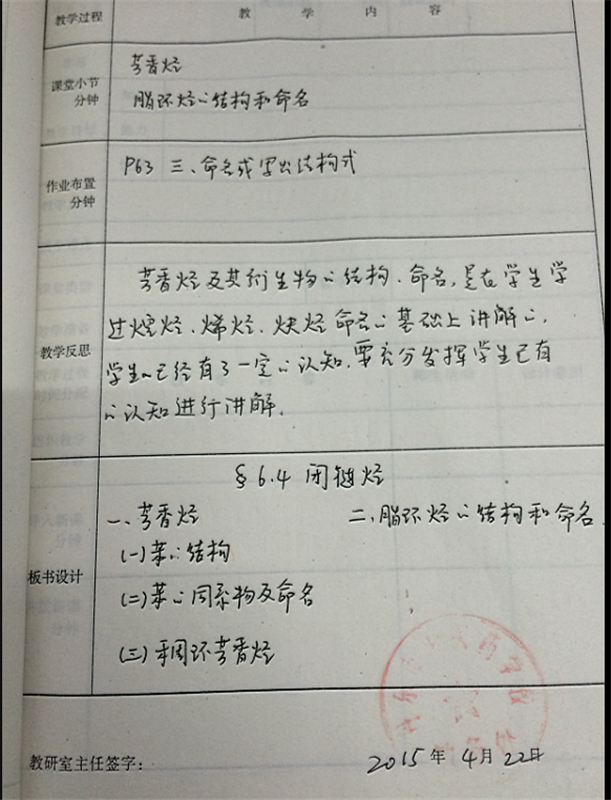 教学过程 教 学 内 容
课堂小节
分钟
芳香烃
脂环烃的结构和命名
作业布置
分钟
P63 三、命名或写出结构式
教学反思
芳香烃及其衍生物的结构、命名,是在学生学
过烷烃、烯烃、炔烃命名的基础上讲解的,
学生们已经有了一定的认知,要充分发挥学生已有
的认知进行讲解。
板书设计
§6.4 闭链烃
一、芳香烃 二、脂环烃的结构和命名
(一)苯的结构
(二)苯的同系物及命名
(三)稠环芳香烃
教研室主任签字: 2015年4月22日